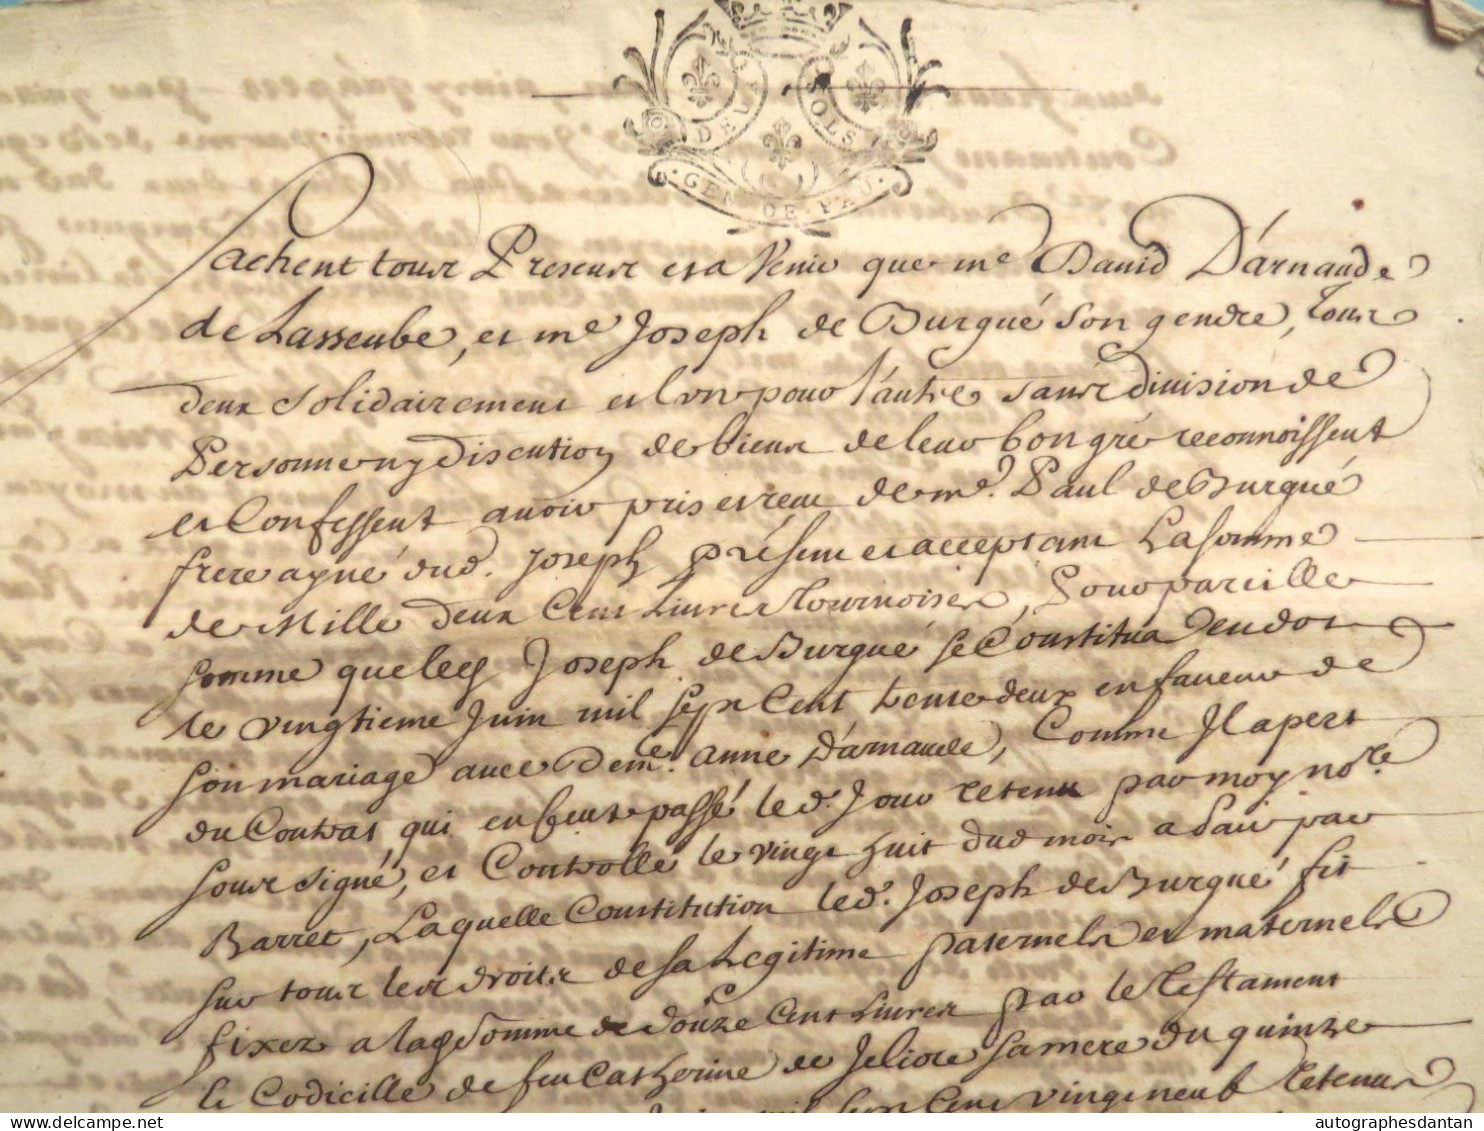 DEUX SOLS
GEN · DE · PAU ·
Sachent tous Presens et a Venir que me David D'arnaude
de Lasseube, et me Joseph de Burgué son gendre, tous
deux solidairement et l'un pour l'autre sans division de
Personne ny discution de biens de leur bon gré reconnoissent
et Confessent avoir pris et reçu de me. Paul de Burgué
frere ayné dud. Joseph présent et acceptant La somme
de Mille deux Cens Livres tournoises, Pour pareille
somme que led Joseph de Burgué se Constitua en dot
le vingtieme Juin mil sept Cent trente deux en faveur de
son mariage avec Demle. anne D'arnaude, Comme Il apert
du Contrat, qui en feut passé led. Jour retenu par moy nore.
sous signé, et Controllé le vingt huit dud mois a Pau par
Barret, Laquelle Constitution led. Joseph de Burgué fit
sur tous les droits de sa Legitime paternels et maternels
fixez a lad somme de Douze Cent Livres par le testament
le Codicille de feu Catherine de Jeliote sa mere du quinze
mil sept Cens vingt neuf retenus
autographesdantan